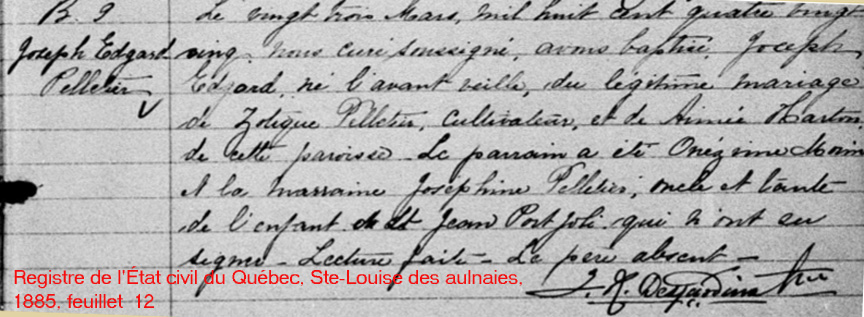 B. 9
Joseph Edgard
Pelletier
Le vingt trois Mars, mil huit cent quatre vingt
cinq, nous curé soussigné, avons baptisé, Joseph
Edgard, né l'avant veille, du légitime mariage
de Zotique Pelletier, cultivateur, et de Aimée Harton
de cette paroisse. Le parrain a été Onézime Morin
et la marraine Joséphine Pelletier, oncle et tante
de l'enfant de St Jean Port Joli qui n'ont su
signer - Lecture faite - Le père absent -
Desjardins Ptre
Registre de l'État civil du Québec, Ste-Louise des aulnaies,
1885, feuillet 12